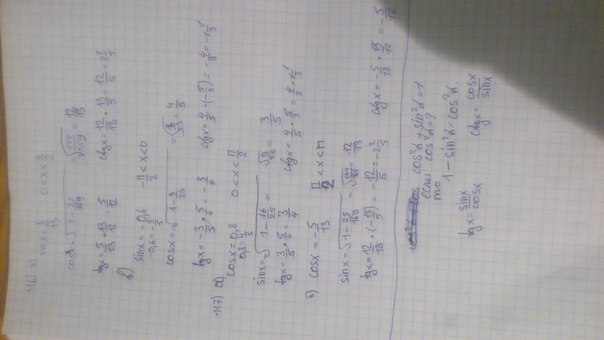 116) б) sinx = 5/13 0<x<π/2
cosx = √(1 - 25/169) = √(144/169) = 12/13
tgx = 5/13 * 13/12 = 5/12 ctgx = 12/13 * 13/5 = 12/5 = 2 2/5
в) sinx = -0,6 -π/2<x<0
-0,6 = -3/5
cosx = √(1 - 9/25) = √(16/25) = 4/5
tgx = -3/5 * 5/4 = -3/4 ctgx = 4/5 * (-5/3) = -4/3 = -1 1/3
117) а) cosx = 0,8 0<x<π/2
0,8 = 4/5
sinx = √(1 - 16/25) = √(9/25) = 3/5
tgx = 3/5 * 5/4 = 3/4 ctgx = 4/5 * 5/3 = 4/3 = 1 1/3
б) cosx = -5/13 π/2<x<π
sinx = √(1 - 25/169) = √(144/169) = 12/13
tgx = 12/13 * (-13/5) = -12/5 = -2 2/5 ctgx = -5/13 * 13/12 = -5/12
cos²α + sin²α = 1
если cos²α = ?
то 1 - sin²α = cos²α
tgx = sinx/cosx ctgx = cosx/sinx